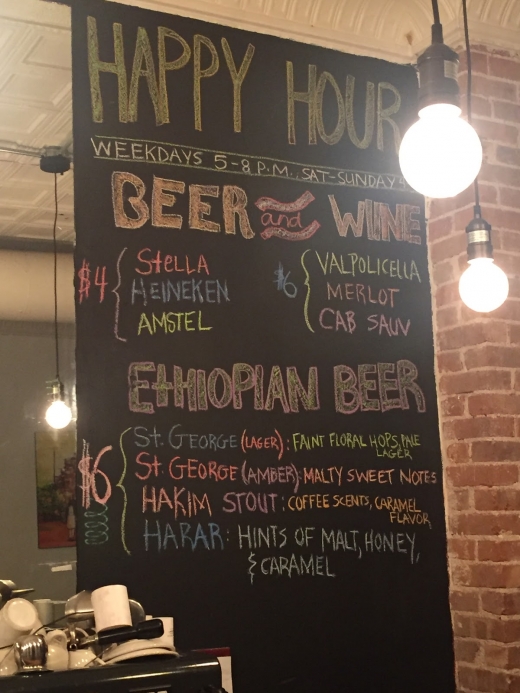 HAPPY HOUR
WEEKDAYS 5-8 P.M. SAT-SUNDAY
BEER and WINE
$4
Stella
HEINEKEN
AMSTEL
$6
VALPOLICELLA
MERLOT
CAB SAUV
EtHIOPIAN BEER
$6
St. GEORGE (LAGER): FAINT FLORAL HOPS, PALE
LAGER
St. GEORGE (AMBER): MALTY SWEET NOTES
HAKIM STOUT: COFFEE SCENTS, CARAMEL
FLAVOR
HARAR: HINTS OF MALT, HONEY,
& CARAMEL